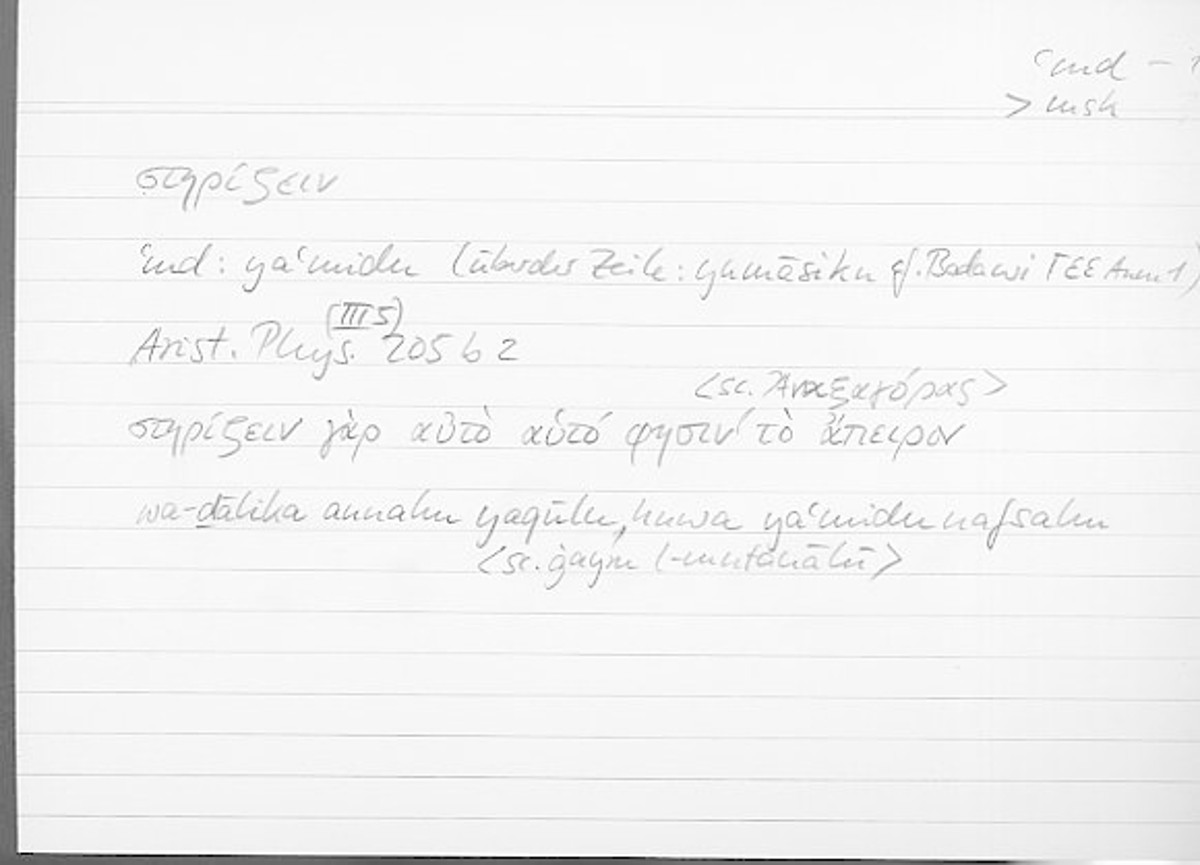 ʿmd – 1
> msk
στηρίζειν
ʿmd: yaʿmidu (über der Zeile: yumāsiku cf. Badawi TEE Anm 1)
(III 5)
Arist. Phys. 205 b 2
<sc. Ἀναξαγόρας>
στηρίζειν γὰρ αὐτὸ αὑτό φησιν τὸ ἄπειρον
wa-ḏālika annahu yaqūlu, huwa yaʿmidu nafsahu
<sc. ġayru l-mutanāhī>